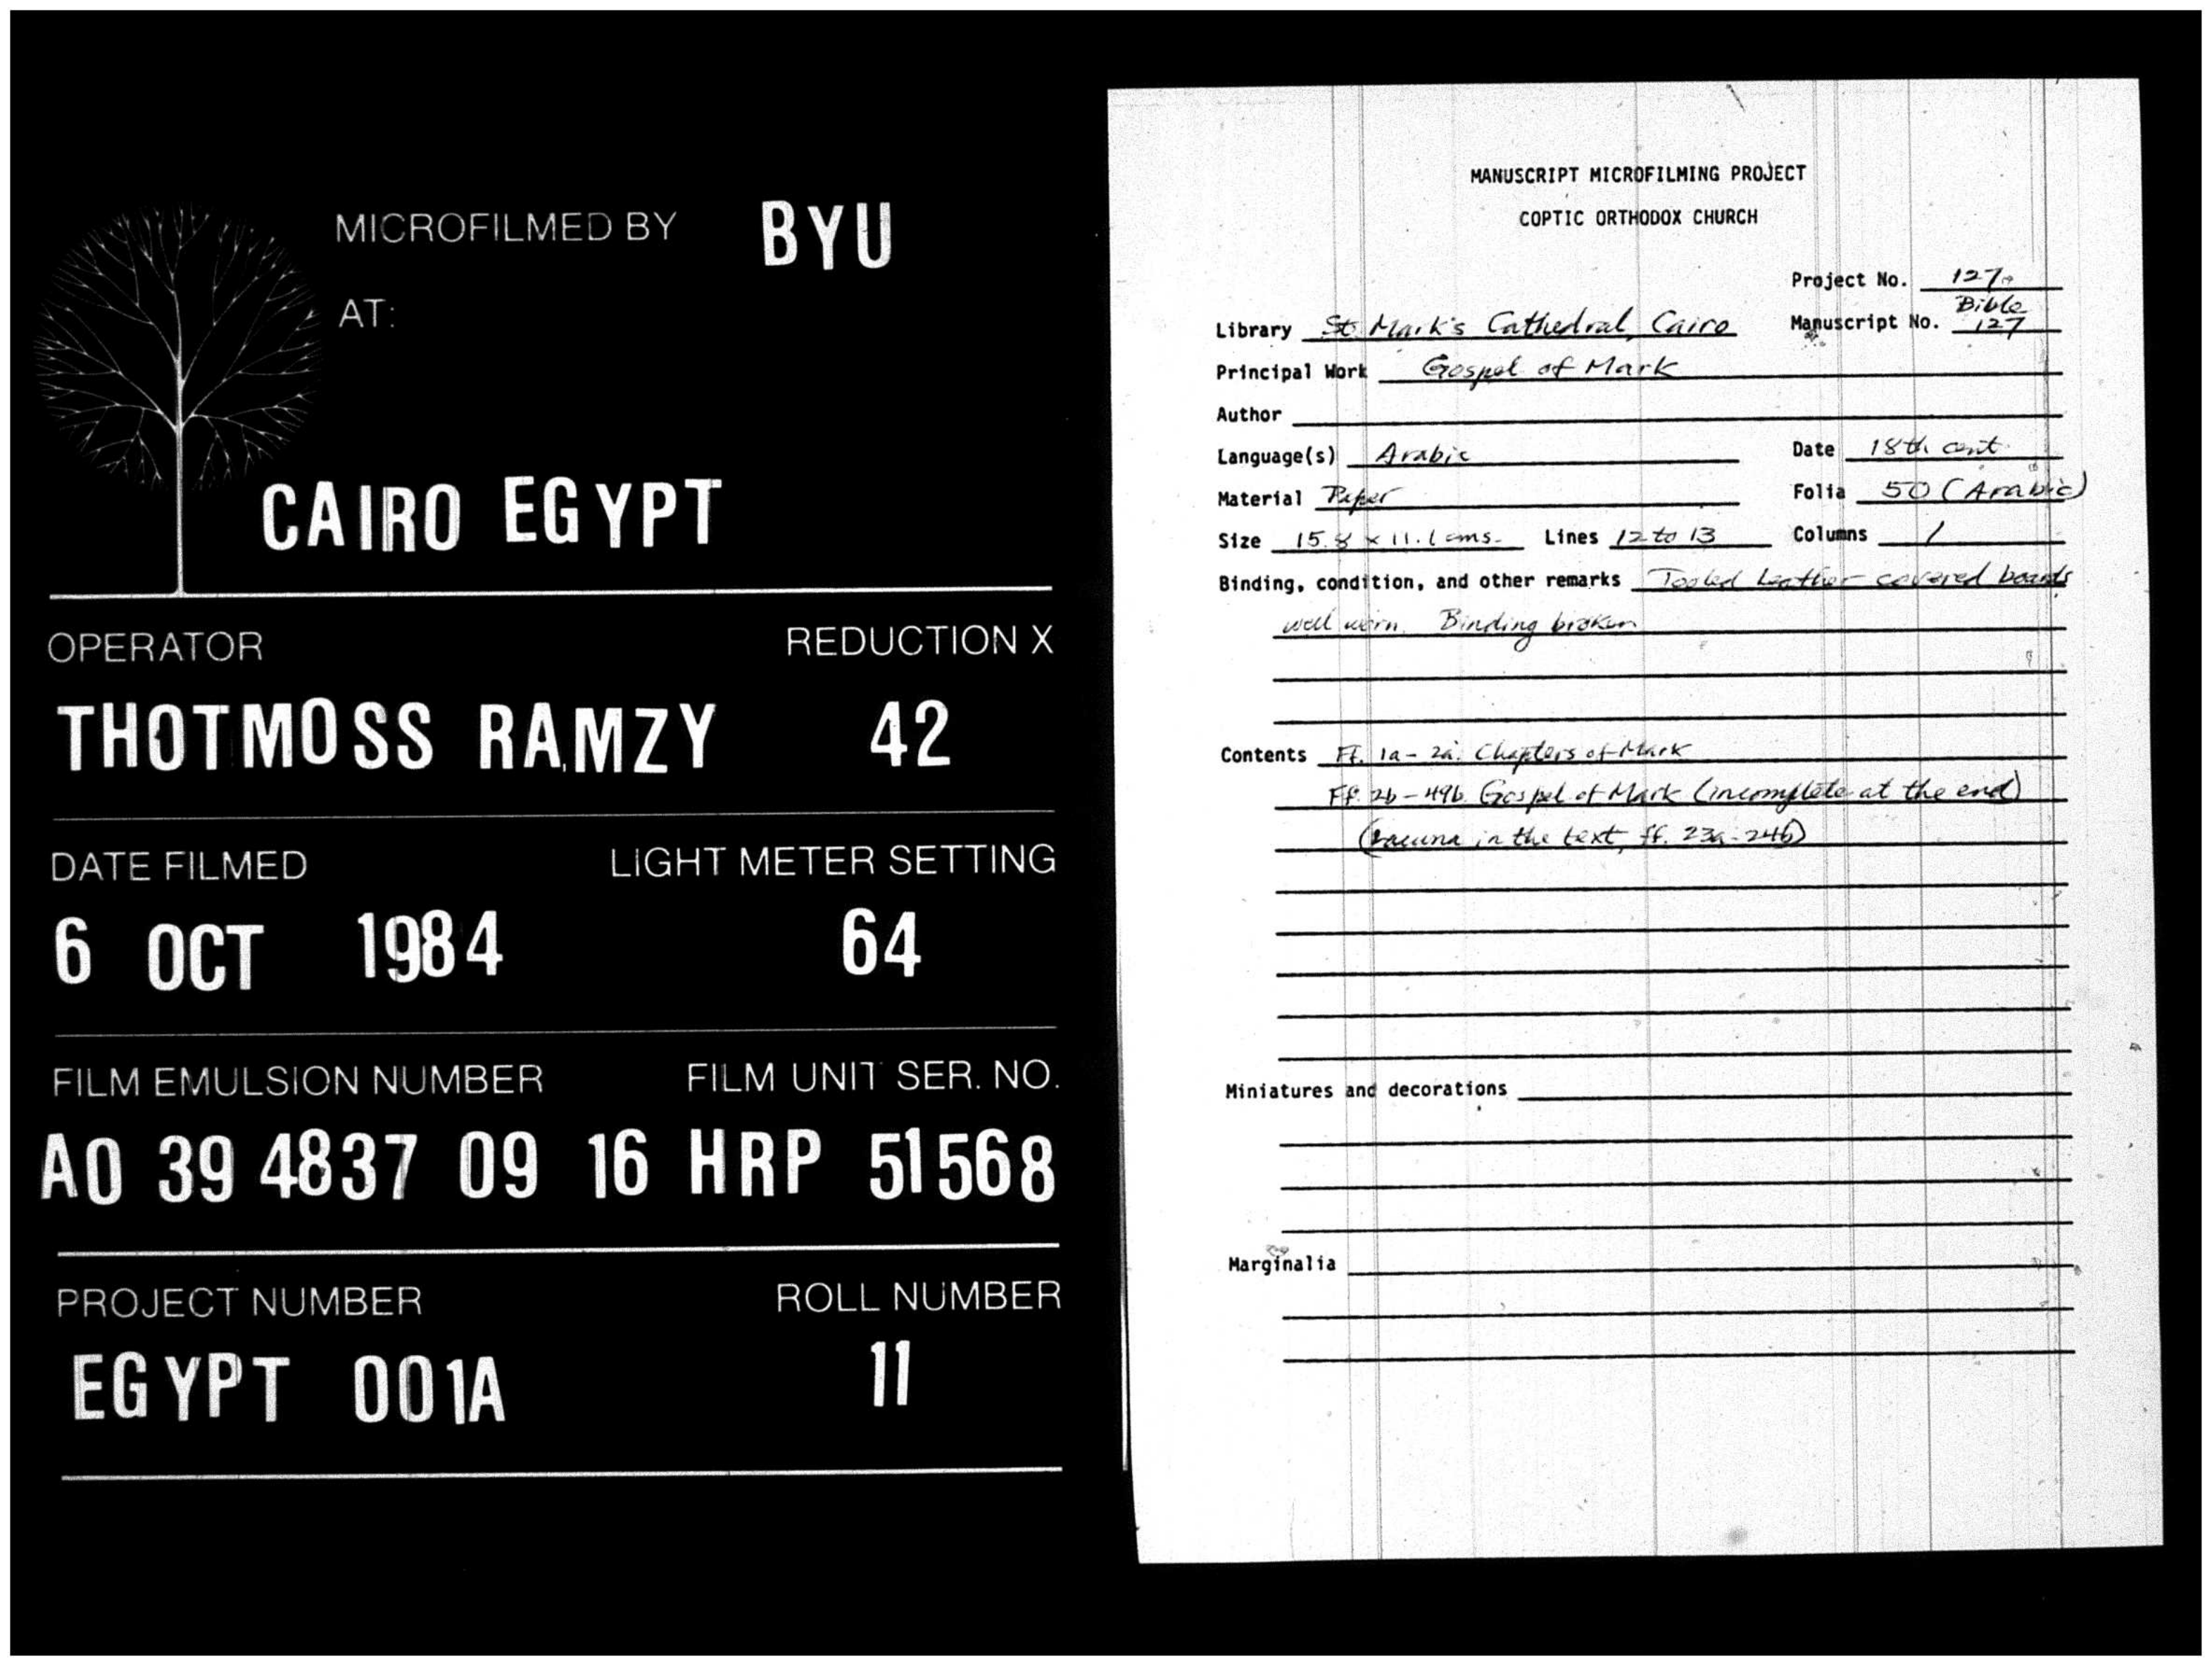 MICROFILMED BY BYU
AT:
CAIRO EGYPT
OPERATOR REDUCTION X
THOTMOSS RAMZY 42
DATE FILMED LIGHT METER SETTING
6 OCT 1984 64
FILM EMULSION NUMBER FILM UNIT SER. NO.
A0 39 4837 09 16 HRP 51568
PROJECT NUMBER ROLL NUMBER
EGYPT 001A 11
MANUSCRIPT MICROFILMING PROJECT
COPTIC ORTHODOX CHURCH
Project No. 127
Bible
Library St. Mark's Cathedral, Cairo Manuscript No. 127
Principal Work Gospel of Mark
Author
Language(s) Arabic Date 18th cent.
Material Paper Folia 50 (Arabic)
Size 15.8 x 11.1 cms. Lines 12 to 13 Columns 1
Binding, condition, and other remarks Tooled leather covered boards
well worn. Binding broken
Contents Ff. 1a-2a: Chapters of Mark
Ff. 2b-49b Gospel of Mark (incomplete at the end)
(Lacuna in the text, ff. 23a-24b)
Miniatures and decorations
Marginalia